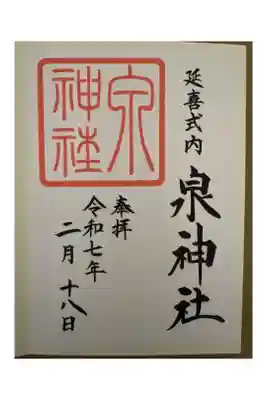 延喜式内
泉神社
泉
神社
奉拝
令和七年
二月十八日